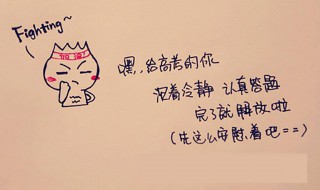 Fighting~
加油!
嘿,给高考的你
沉着冷静 认真答题
完了就解放啦
(先这么安慰着吧==)